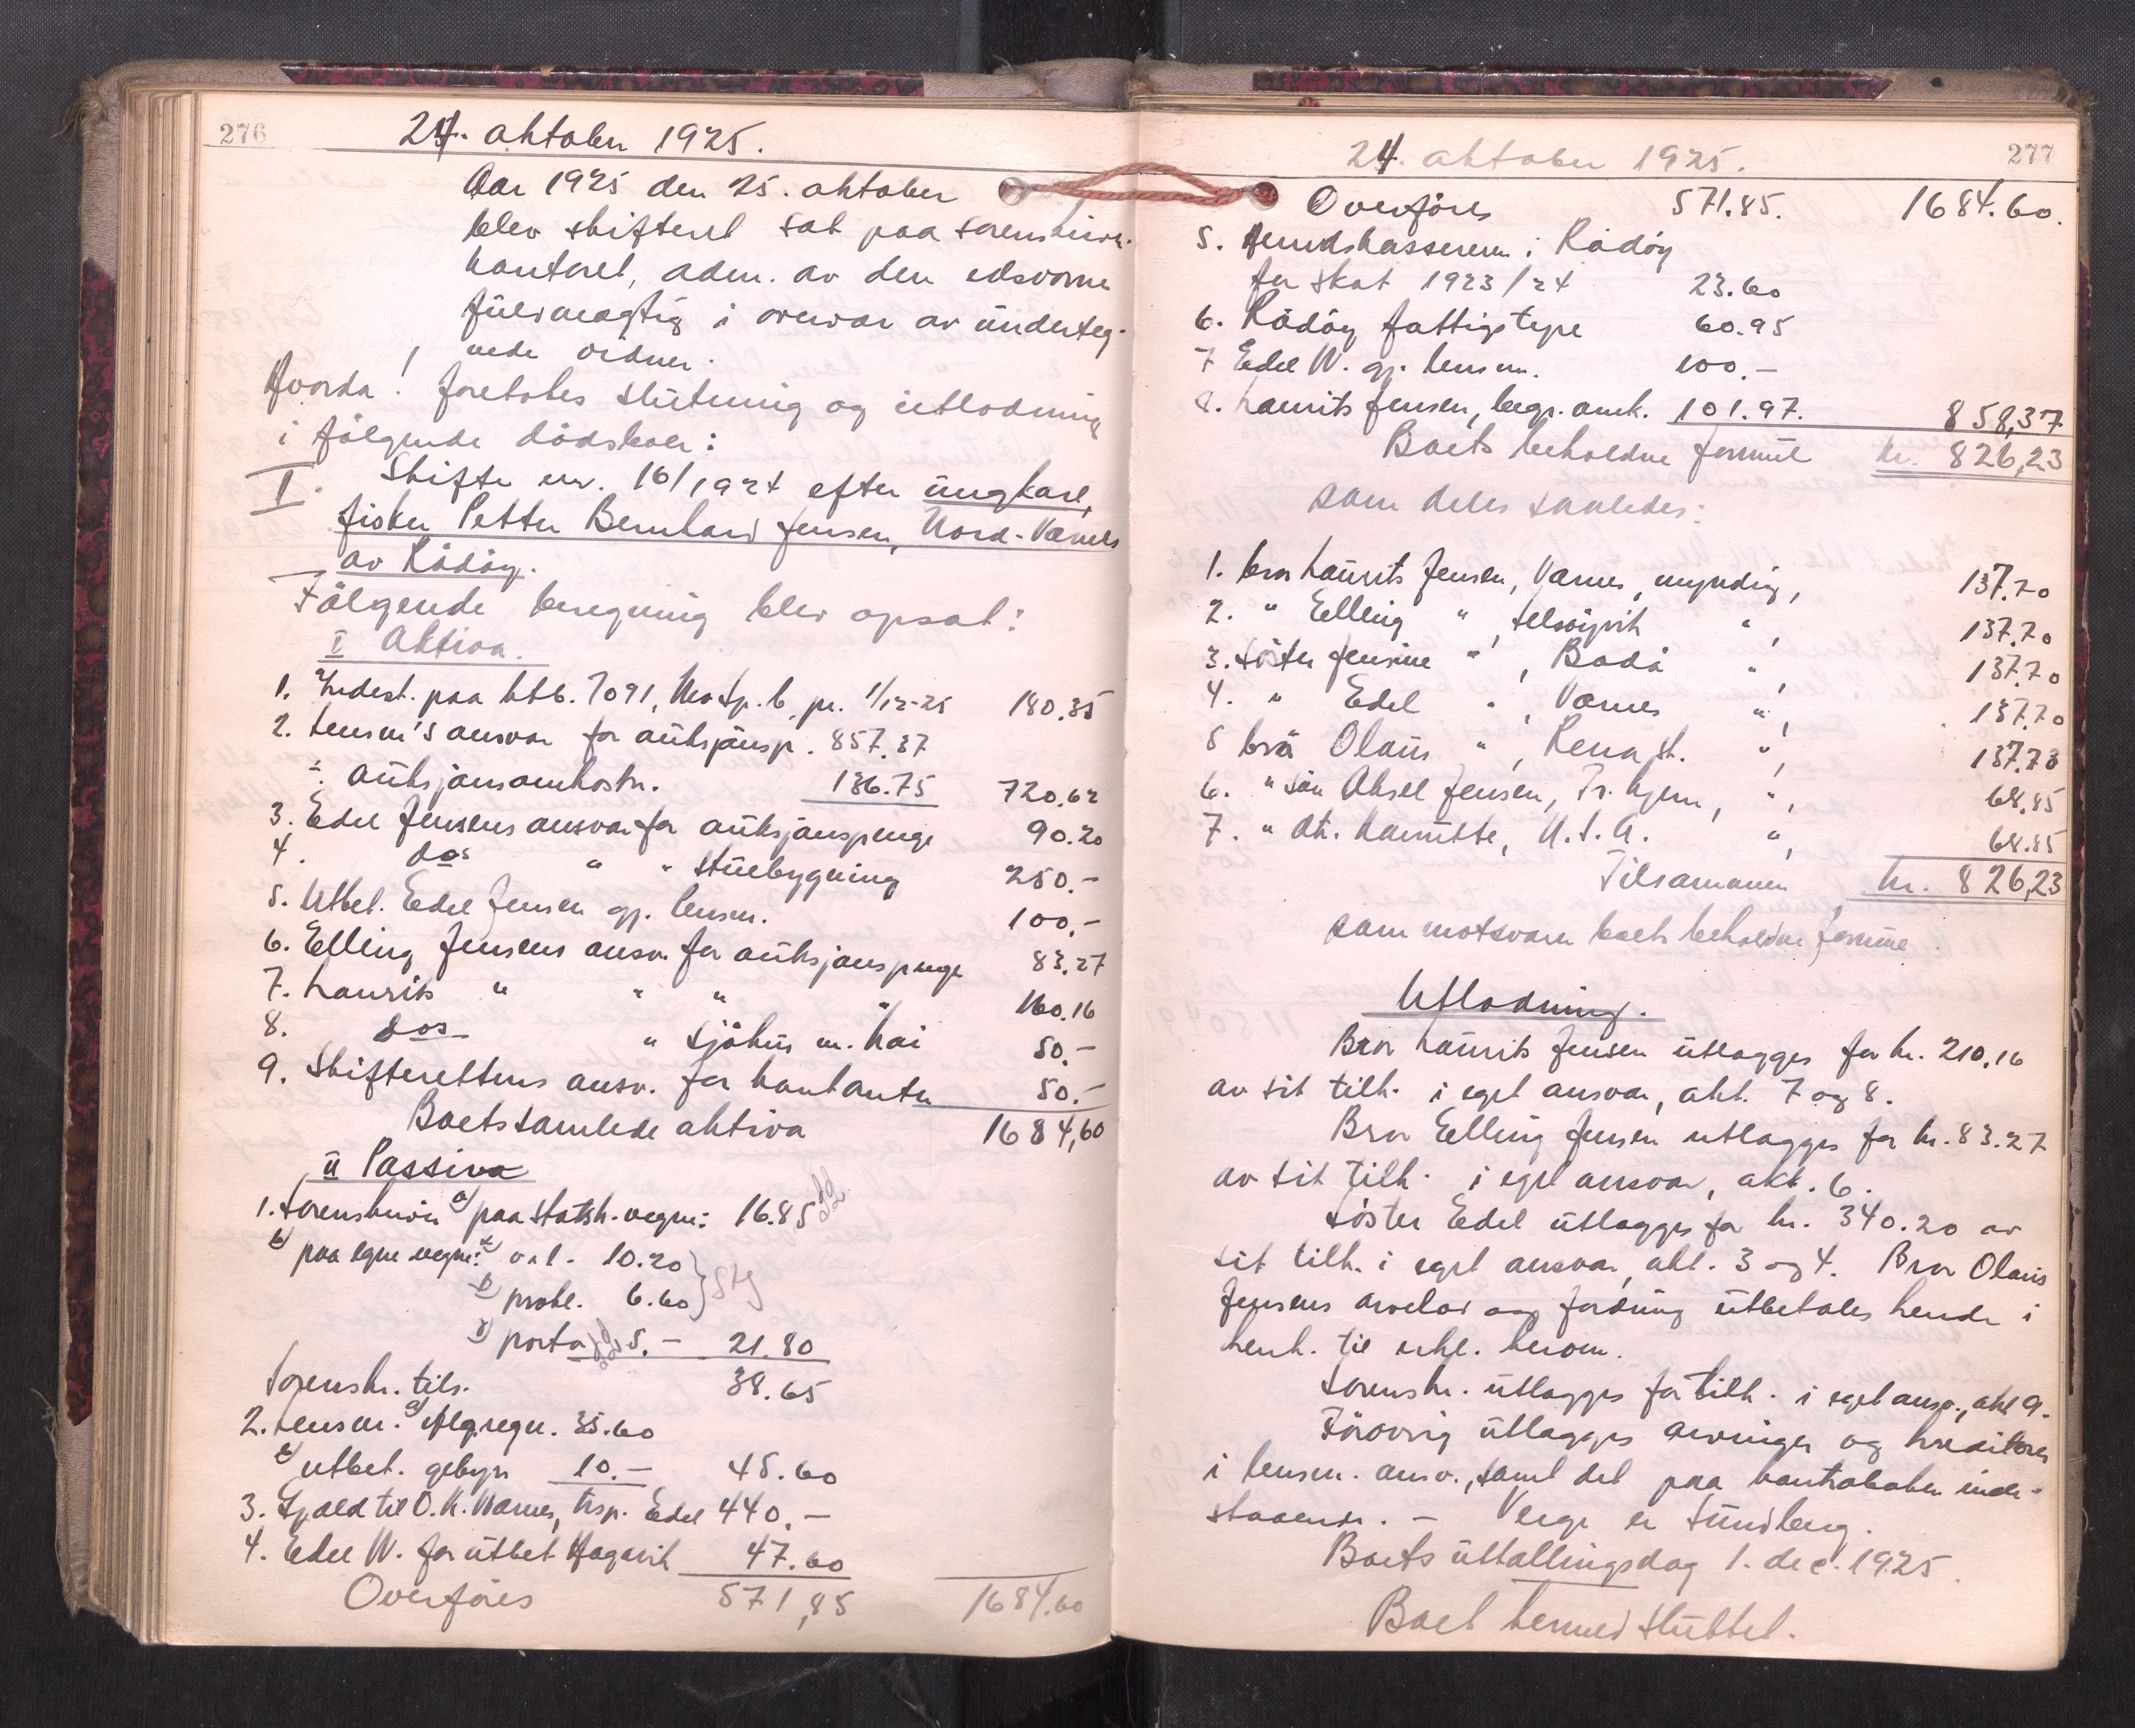 276
24. oktober 1925.
Aar 1925 den 25. oktober
blev skifteret sat paa sorenskriver-
kontoret, adm. av den edsvorne
fuldmægtig i overvær av underteg-
nede vidner.
Hvorda! foretokes slutning og utlodning
i følgende dødsboer:
I. Skifte nr. 16/1924 efter ungkarl,
fisker Petter Bernhard Jensen, Nord-Værnes
av Rødøy.
Følgende beregning blev opsat:
I Aktiva.
1. Indest. paa ktb. 7091, Mo Sp.b. pr. 1/12-25 180.35
2. Lensm's ansvar for auksjonsp. 857.37
÷ auksjonsomkostn. 136.75 720.62
3. Edel Jensens ansvar for auksjonspenge 90.20
4. dos " " stuebygning 250.-
5. Utbet. Edel Jensen gj. lensm. 100.-
6. Elling Jensens ansv. for auksjonspenge 83.27
7. Laurits " " " " 160.16
8. dos " sjøhus m. kai 50.-
9. Skifterettens ansv. for kontanter 50.-
Boets samlede aktiva 1684,60
II Passiva
1. Sorenskriver a) paa statsk. vegne: 16.85
b) paa egne vegne: α) v.l. 10.20
β) prokl. 6.60
γ) porto 5.- 21.80
Sorenskr. tils. 38.65
2. Lensm. a) Alg. regn. 35.60
b) utbet. gebyr 10.- 45.60
3. Gjæld til O. K. Værnes, trsp. Edel 440.-
4. Edel W. for utbet Hagavik 47.60
Overføres 571,85 1684.60
277
24. oktober 1925.
Overføres 571.85. 1684.60.
5. Herredskassereren i Rødøy
for skat 1923/24 23.60
6. Rødøy fattigstyre 60.95
7 Edel W. gj. lensm. 100.-
8. Laurits Jensen, begr. omk. 101.97. 858,37
Boets beholdne formue kr. 826,23
som deles saaledes:
1. bror Laurits Jensen, Værnes, myndig, 137.70
2. " Elling " , Selsøyvik " , 137.70
3. Søster Jensine " , Bodø " , 137.70
4. " Edel " , Værnes " , 137.70
5 bror Olaus " , Rena st. " , 137.73
6. " søn Aksel Jensen, Tr.hjem, " , 68.85
7. " dt. Hamutte, U.S.A. " , 68.85
Tilsammen kr. 826,23
som motsvarer boets beholdne formue.
Utlodning.
Bror Laurits Jensen utlægges for kr. 210.16
av sit tilh. i eget ansvar, akt. 7 og 8.
Bror Elling Jensen utlægges for kr. 83.27
av sit tilh. i eget ansvar, akt. 6.
Søster Edel utlægges for kr. 340.20 av
sit tilh. i eget ansvar, akt. 3 og 4. Bror Olaus
Jensens arvelod og fordring utbetales hende i
henh. til erkl. herom.
Sorenskr. utlægges for tilh. i eget ansv., akt 9.
Forøvrig utlægges arvinger og kreditorer
i lensm. ansv., samt det paa kontraboken inde-
staaende. - Verge er Sundberg.
Boets uttællingsdag 1. dec. 1925.
Boet hermed sluttet.